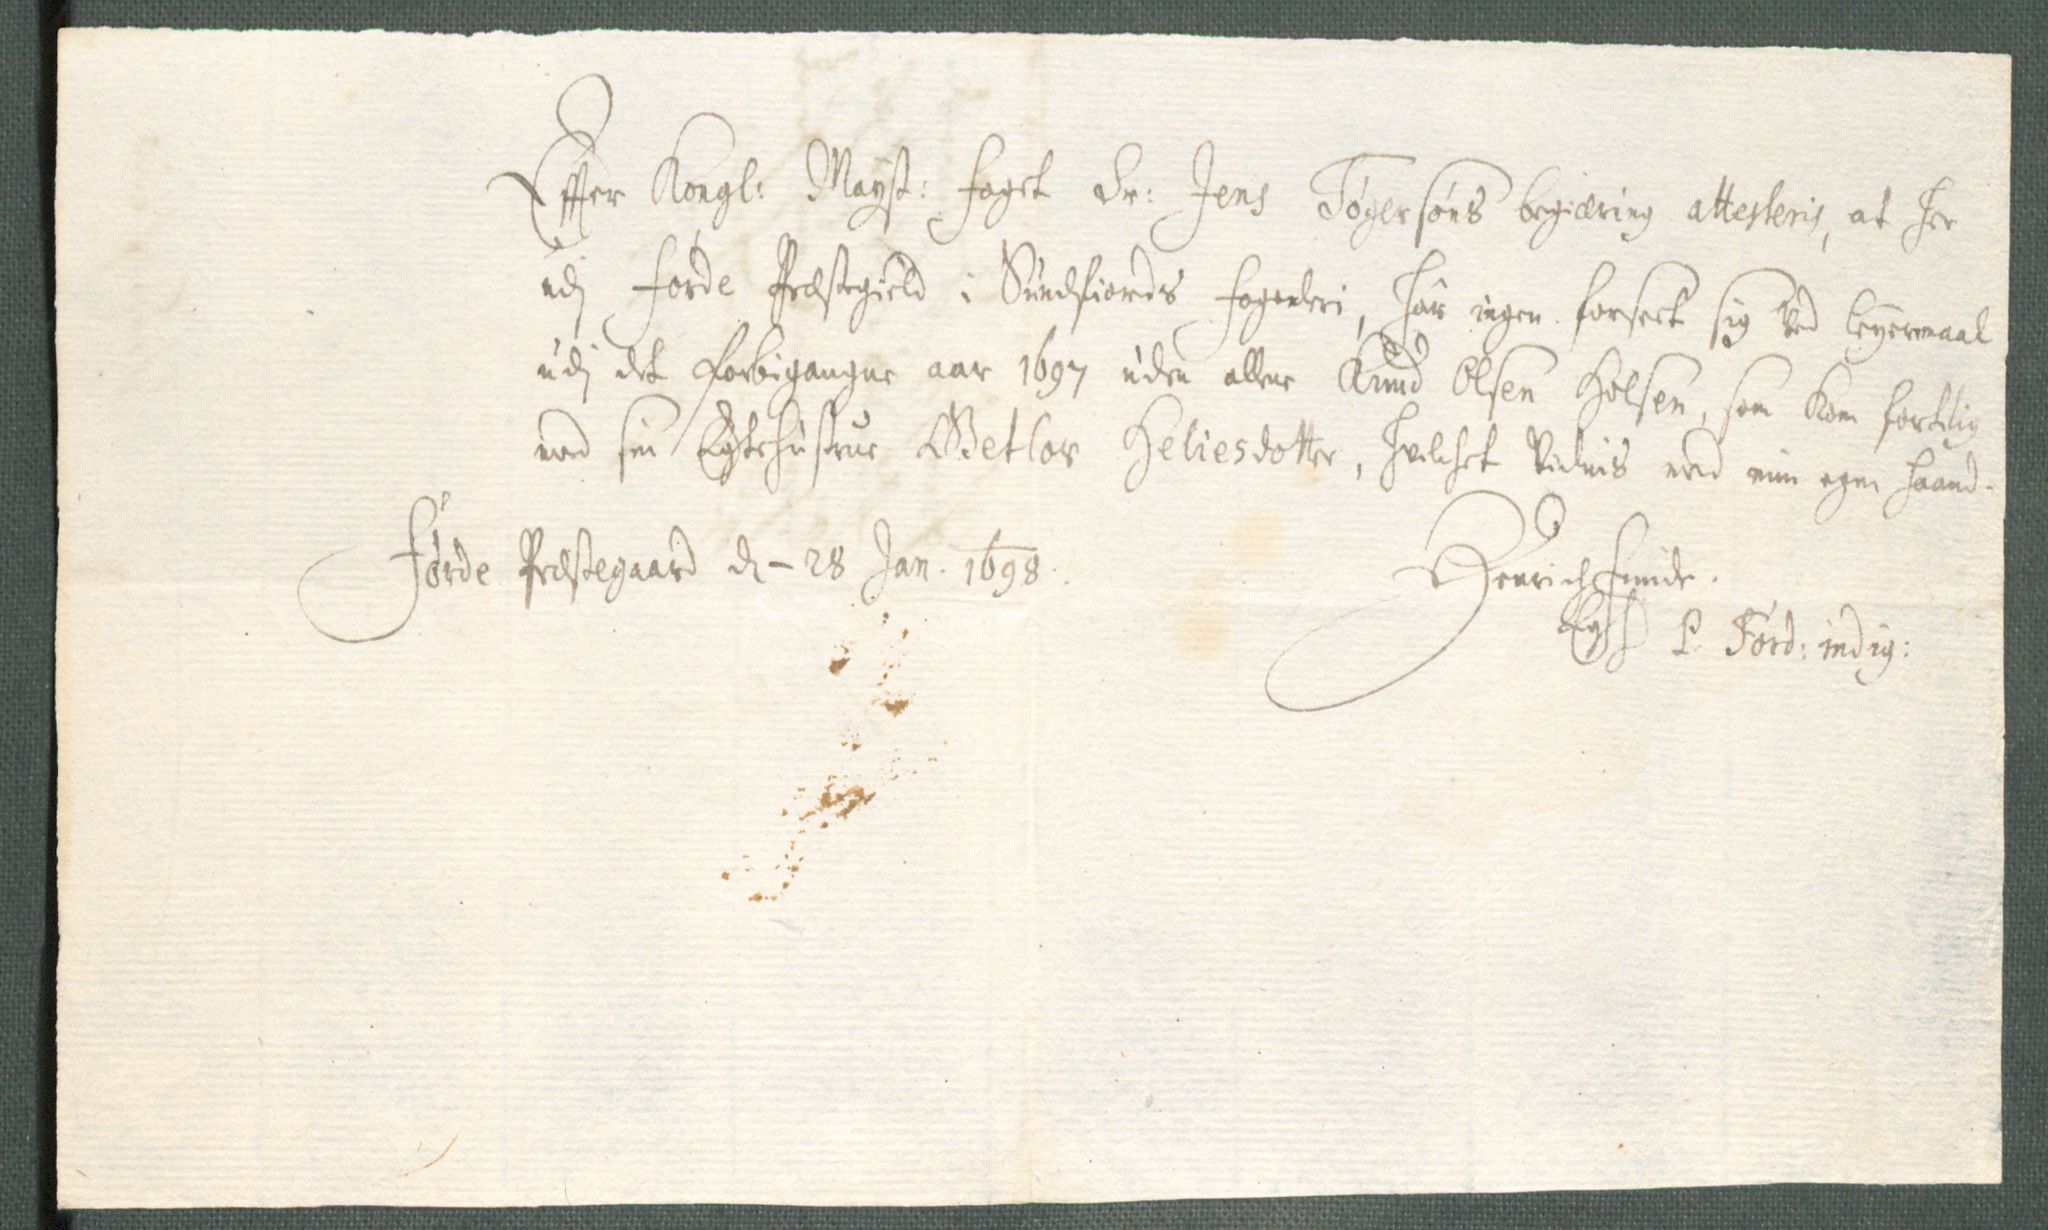 Effter Kongl: Mayst: foget Sr: Jens Tøgersøns begiæring attesteris, at her
udj Førde Præstegield i Sundfiords fogderi, har ingen forseet sig ved leyermaal
udj det forbigangne aar 1697 uden allene Knud Olsen Holsen, som kom for tilig
med sin Egtehustrue Botlov Heliesdotter, hvilchet vidnis med min egen haand.
Førde Præstegaard d. 28 Jan. 1698.
Henrich
P. Førd: indig: